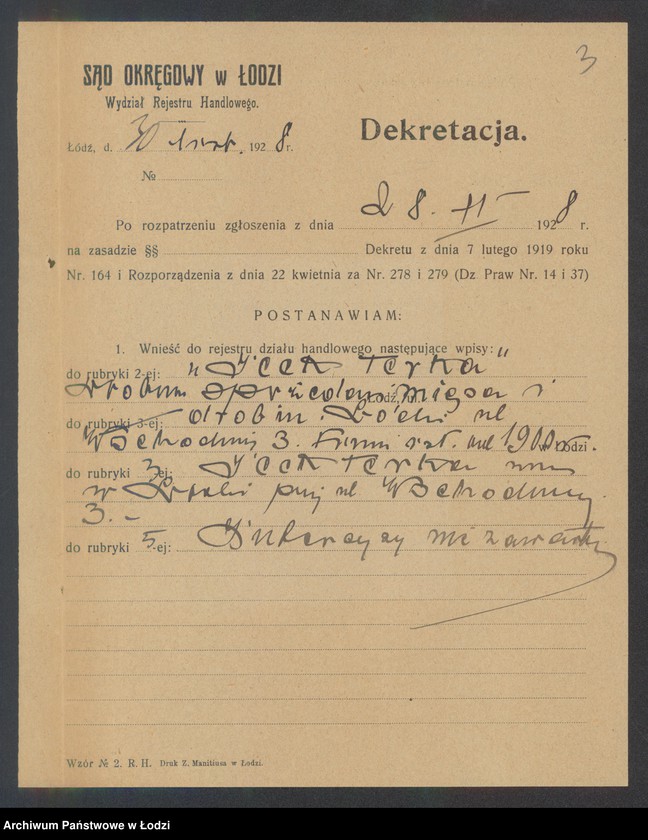 3
SĄD OKRĘGOWY w ŁODZI
Wydział Rejestru Handlowego.
Dekretacja.
Łódź, d. 30 192 8 r.
№
Po rozpatrzeniu zgłoszenia z dnia 28. II 192 8 r.
na zasadzie §§ Dekretu z dnia 7 lutego 1919 roku
Nr. 164 i Rozporządzenia z dnia 22 kwietnia za Nr. 278 i 279 (Dz Praw Nr. 14 i 37)
POSTANAWIAM:
1. Wnieść do rejestru działu handlowego następujące wpisy:
do rubryki 2-ej: „Icek Terka"
mięsa i
do rubryki 3-ej: drobiu. ul
Wschodniej 3. w Łodzi.
do rubryki 3 ej: Icek Terka
w przy ul. Wschodniej
3. –
do rubryki 5-ej: Intercyzy nie zawarł
Wzór № 2. R. H. Druk Z. Manitiusa w Łodzi.
Archiwum Państwowe w Łodzi